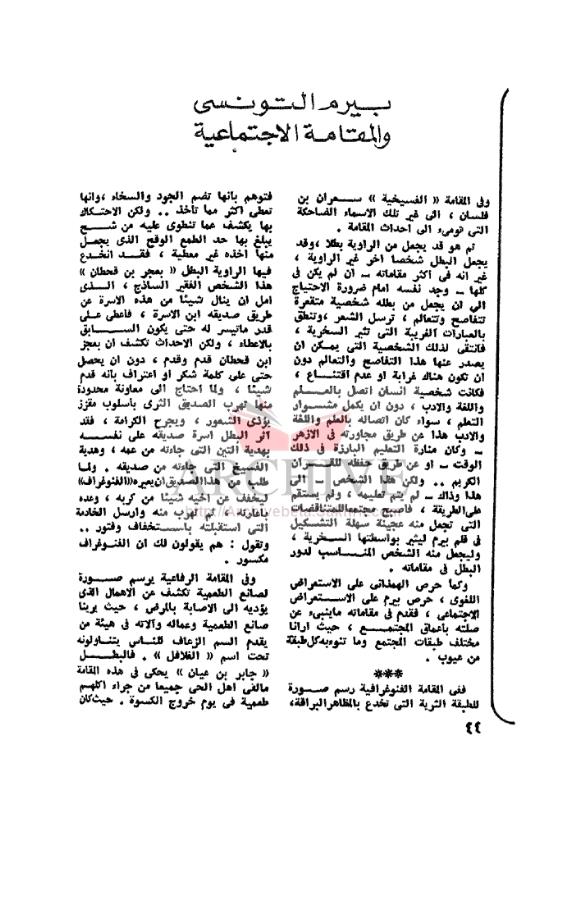 بيرم التونسى
والمقامة الاجتماعية
وفى المقامة « الفسيخية » سمعران بن
فلسان ، الى غير تلك الاسماء الضاحكة
التى تومىء الى احداث المقامة .
ثم هو قد يجعل من الراوية بطلا ، وقد
يجعل البطل شخصا آخر غير الراوية ،
غير انه فى اكثر مقاماته ـ ان لم يكن فى
كلها ـ وجد نفسه امام ضرورة الاحتياج
الى ان يجعل من بطله شخصية متقعرة
تتفاصح وتتعالم ، ترسل الشعر ، وتنطق
بالعبارات الغريبة التى تثير السخرية ،
فانتقى لذلك الشخصية التى يمكن ان
يصدر عنها هذا التفاصح والتعالم دون
ان تكون هناك غرابة او عدم اقتناع ،
فكانت شخصية انسان اتصل بالعلم
واللغة والادب ، دون ان يكمل مشوار
التعلم ، سواء كان اتصاله بالعلم واللغة
والادب هذا عن طريق مجاورته فى الازهر
ـ وكان منارة التعليم البارزة فى ذلك
الوقت ـ او عن طريق حفظه للقرآن
الكريم .. ولكن هذا الشخص ـ الى
هذا وذاك ـ لم يتم تعليمه ، ولم يستقم
على الطريقة ، فاصبح مجتمعا للمتناقضات
التى تجعل منه عجينة سهلة التشكيل
فى قلم بيرم ليثير بواسطتها السخرية ،
وليجعل منه الشخص المناسب لدور
البطل فى مقاماته .
وكما حرص الهمذانى على الاستعراض
اللغوى ، حرص بيرم على الاستعراض
الاجتماعى ، فقدم فى مقاماته ماينبىء عن
صلته بأعماق المجتمع ، حيث ارانا
مختلف طبقات المجتمع وما تنوء به كل طبقة
من عيوب .
***
ففى المقامة الفنوغرافية رسم صورة
للطبقة الثرية التى تخدع بالمظاهر البراقة،
فتوهم بانها تضم الجود والسخاء ، وانها
تعطى اكثر مما تأخذ .. ولكن الاحتكاك
بها يكشف عما تنطوى عليه من شح
يبلغ بها حد الطمع الوقح الذى يجعل
منها آخذه غير معطية ، فقد انخدع
فيها الراوية البطل « بعجر بن قحطان »
هذا الشخص الفقير الساذج ، الذى
امل ان ينال شيئا من هذه الاسرة عن
طريق صديقه ابن الاسرة ، فاعطى على
قدر ماتيسر له حتى يكون السابق
بالاعطاء ، ولكن الاحداث تكشف ان بعجر
ابن قحطان قدم وقدم ، دون ان يحصل
حتى على كلمة شكر او اعتراف بانه قدم
شيئا ، ولما احتاج الى معاونة محدودة
منها تهرب الصديق الثرى بأسلوب مقزز
يؤذى الشعور ، ويجرح الكرامة ، فقد
آثر البطل اسرة صديقه على نفسه
بهدية التين التى جاءته من عمه ، وهدية
الفسيخ التى جاءته من صديقه . ولما
طلب من هذا الصديق ان يعيره «الفنوغراف»
ليخفف عن اخيه شيئا من كربه ، وعده
باعارته ، ثم تهرب منه وارسل الخادمة
التى استقبلته باستخفاف وفتور ..
وتقول : هم يقولون لك ان الفنوغراف
مكسور .
وفى المقامة الرفاعية يرسم صورة
لصانع الطعمية تكشف عن الاهمال الذى
يؤديه الى الاصابة بالمرض ، حيث يرينا
صانع الطعمية وعماله وآلاته فى هيئة من
يقدم السم الزعاف للناس يتناولونه
تحت اسم « الفلافل » . فالبطل
« جابر بن عيان » يحكى فى هذه المقامة
مالقى اهل الحى جميعا من جراء اكلهم
طعمية فى يوم خروج الكسوة . حيث كان
٤٤
ARCHIVE